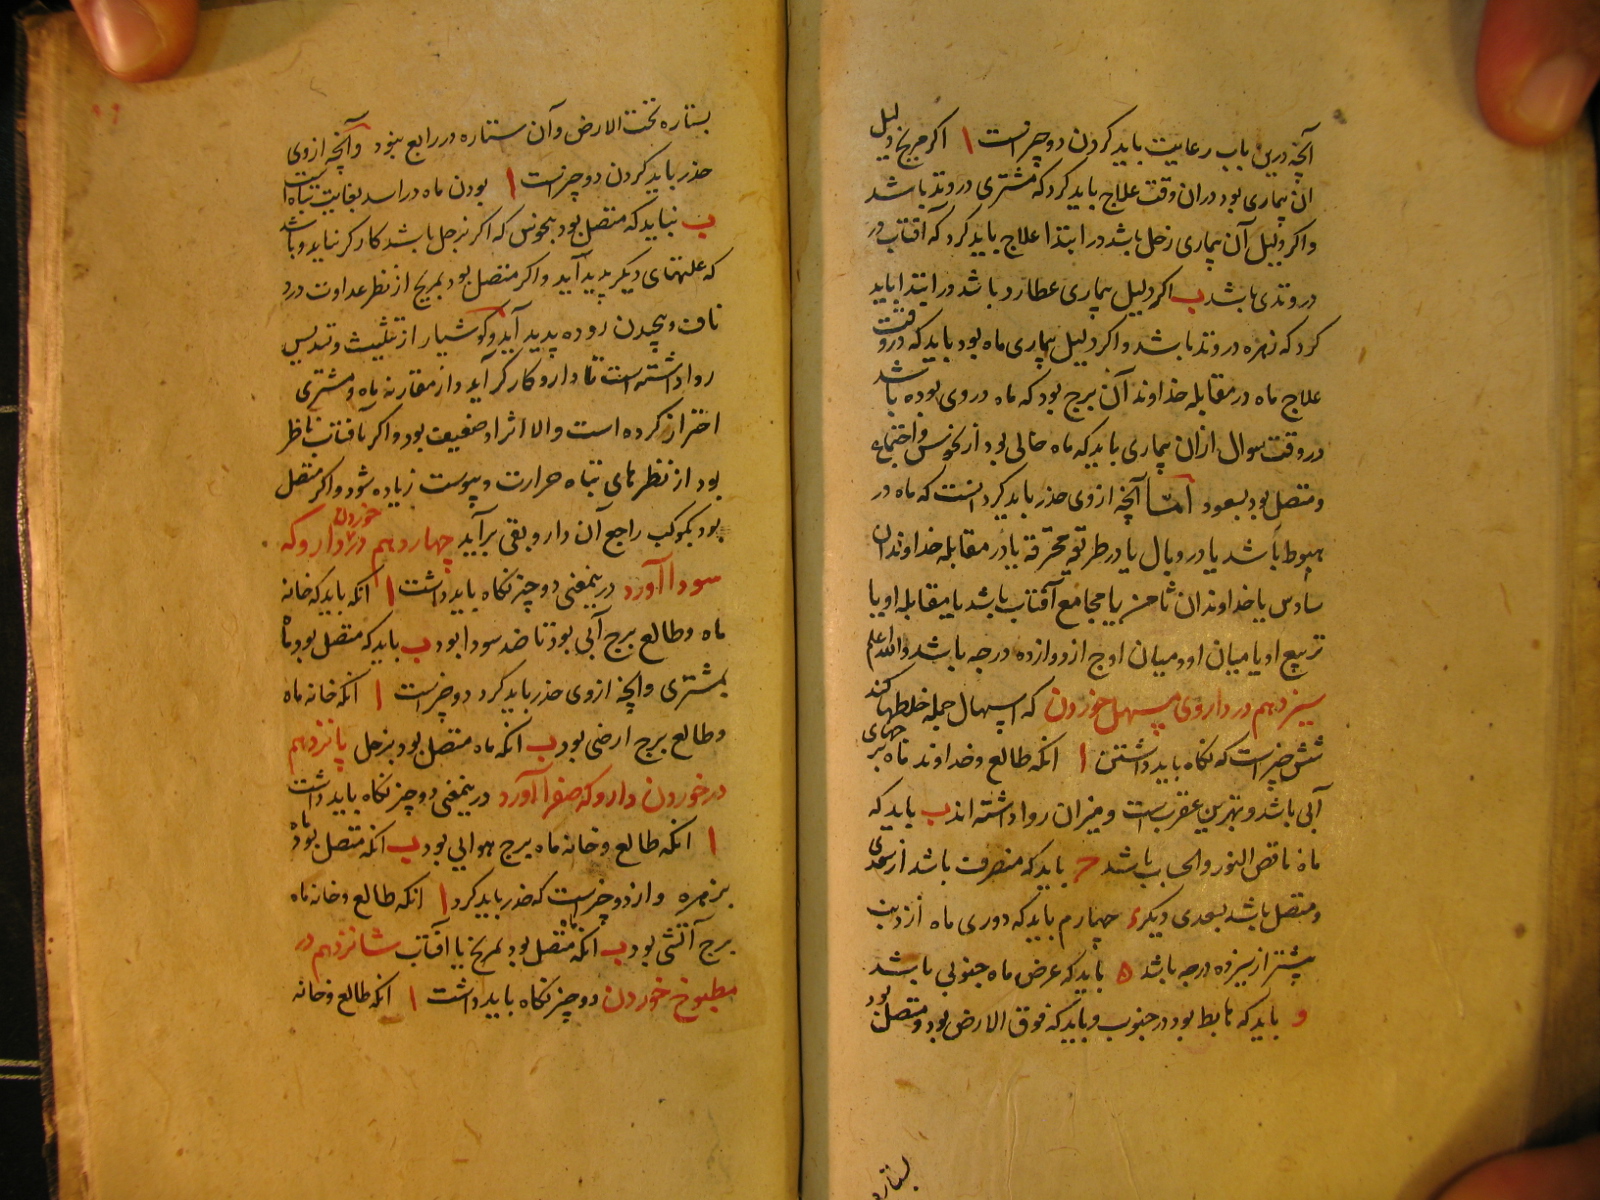 آنچه درین باب رعایت باید کردن دو چیزست ا اکر مریخ دلیل
ان بیماری بود دران وقت علاج باید کرد که مشتری در وتد باشد
و اکر دلیل آن بیماری زحل باشد در ابتدا علاج باید کرد که آفتاب در
در وتدی باشد ب اکر دلیل بیماری عطارد باشد در ابتدا باید
کرد که زهره در وتد باشد و اکر دلیل بیماری ماه بود باید که در وقت
علاج ماه در مقابله خداوند آن برج بود که ماه در وی بوده باشد
در وقت سوال ازان بیماری باید که ماه خالی بود از نحوس و اجتماع
و متصل بود بسعود اما آنچه از وی حذر باید کرد انست که ماه در
هبوط باشد یا در وبال یا در طریقه محترقه یا در مقابله خداوندان
سادس یا خداوندان ثامن یا مجامع آفتاب باشد یا مقابله او یا
تربیع او یا میان او و میان اوج از دوازده درجه باشد والله اعلم
سیزدهم در داروی مسهل خوردن که اسهال جمله خلطها کند
شش چیزست که نکاه باید داشتن ا انکه طالع و خداوند ماه برجهای
آبی باشد و بهترین عقربست و میزان روا داشته اند ب باید که
ماه ناقص النور والحساب باشد ح باید که منصرف باشد از سعدی
و متصل باشد بسعدی دیکر ء چهارم باید که دوری ماه از ذنب
بیشتر از سیزده درجه باشد ه باید که عرض ماه جنوبی باشد
و باید که هابط بود در جنوب و باید که فوق الارض بود و متصل بود
بستاره
۹۹
بستاره تحت الارض و آن ستاره در رابع نبود و آنچه از وی
حذر باید کردن دو چیزست ا بودن ماه در اسد بغایت تباه است
ب نباید که متصل بود بنحوس که اکر بزحل باشد کارکر نیاید و باشد
که علتهای دیکر پدید آید و اکر متصل بود بمریخ از نظر عداوت درد
ناف و پیچیدن روده پدید آید و کوشیار از تثلیث و تسدیس
روا داشته است تا دارو کارکر آید و از مقارنه ماه و مشتری
احتراز کرده است والا اثر او ضعیف بود و اکر بآفتاب ناظر
بود از نظرهای تباه حرارت و یبوست زیاده شود و اکر متصل
بود بکوکب راجع آن دارو بقی برآید چهاردهم در خوردن دارو که
سودا آورد درینمعنی دو چیز نکاه باید داشت ا انکه باید که خانه
ماه و طالع برج آبی بود تا ضد سودا بود ب باید که متصل بود ماه
بمشتری و آنچه از وی حذر باید کرد دو چیزست ا انکه خانه ماه
و طالع برج ارضی بود ب انکه ماه متصل بود بزحل پانزدهم
در خوردن دارو که صفرا آورد درینمعنی دو چیز نکاه باید داشت
ا انکه طالع و خانه ماه برج هوایی بود ب انکه متصل بود ماه
بزهره و از دو چیزست که حذر باید کرد ا انکه طالع و خانه ماه
برج آتشی بود ب انکه ماه متصل بود بمریخ یا آفتاب شانزدهم در
مطبوخ خوردن دو چیز نکاه باید داشت ا انکه طالع و خانه